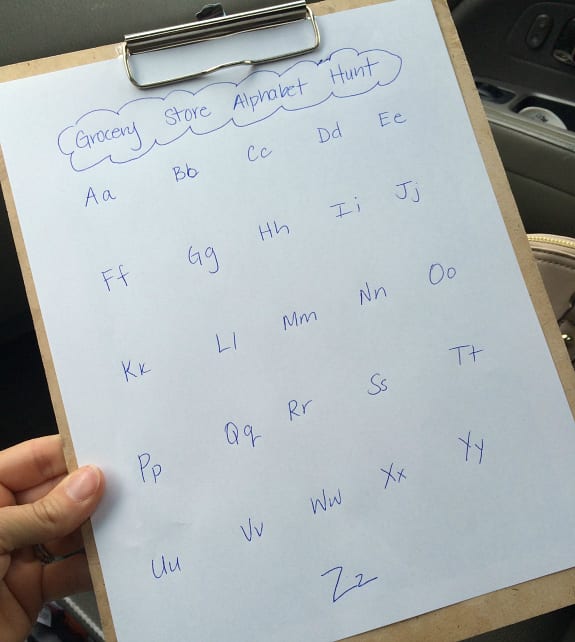 Grocery Store Alphabet Hunt
Aa Bb Cc Dd Ee
Ff Gg Hh Ii Jj
Kk Ll Mm Nn Oo
Pp Qq Rr Ss Tt
Uu Vv Ww Xx Yy
Zz